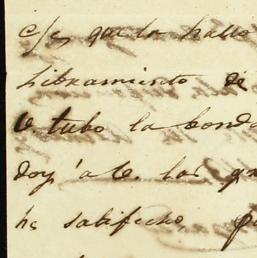 que la hallo
Libramiento de
V. tubo la bond
doy á V. las gr
he satifecho, p